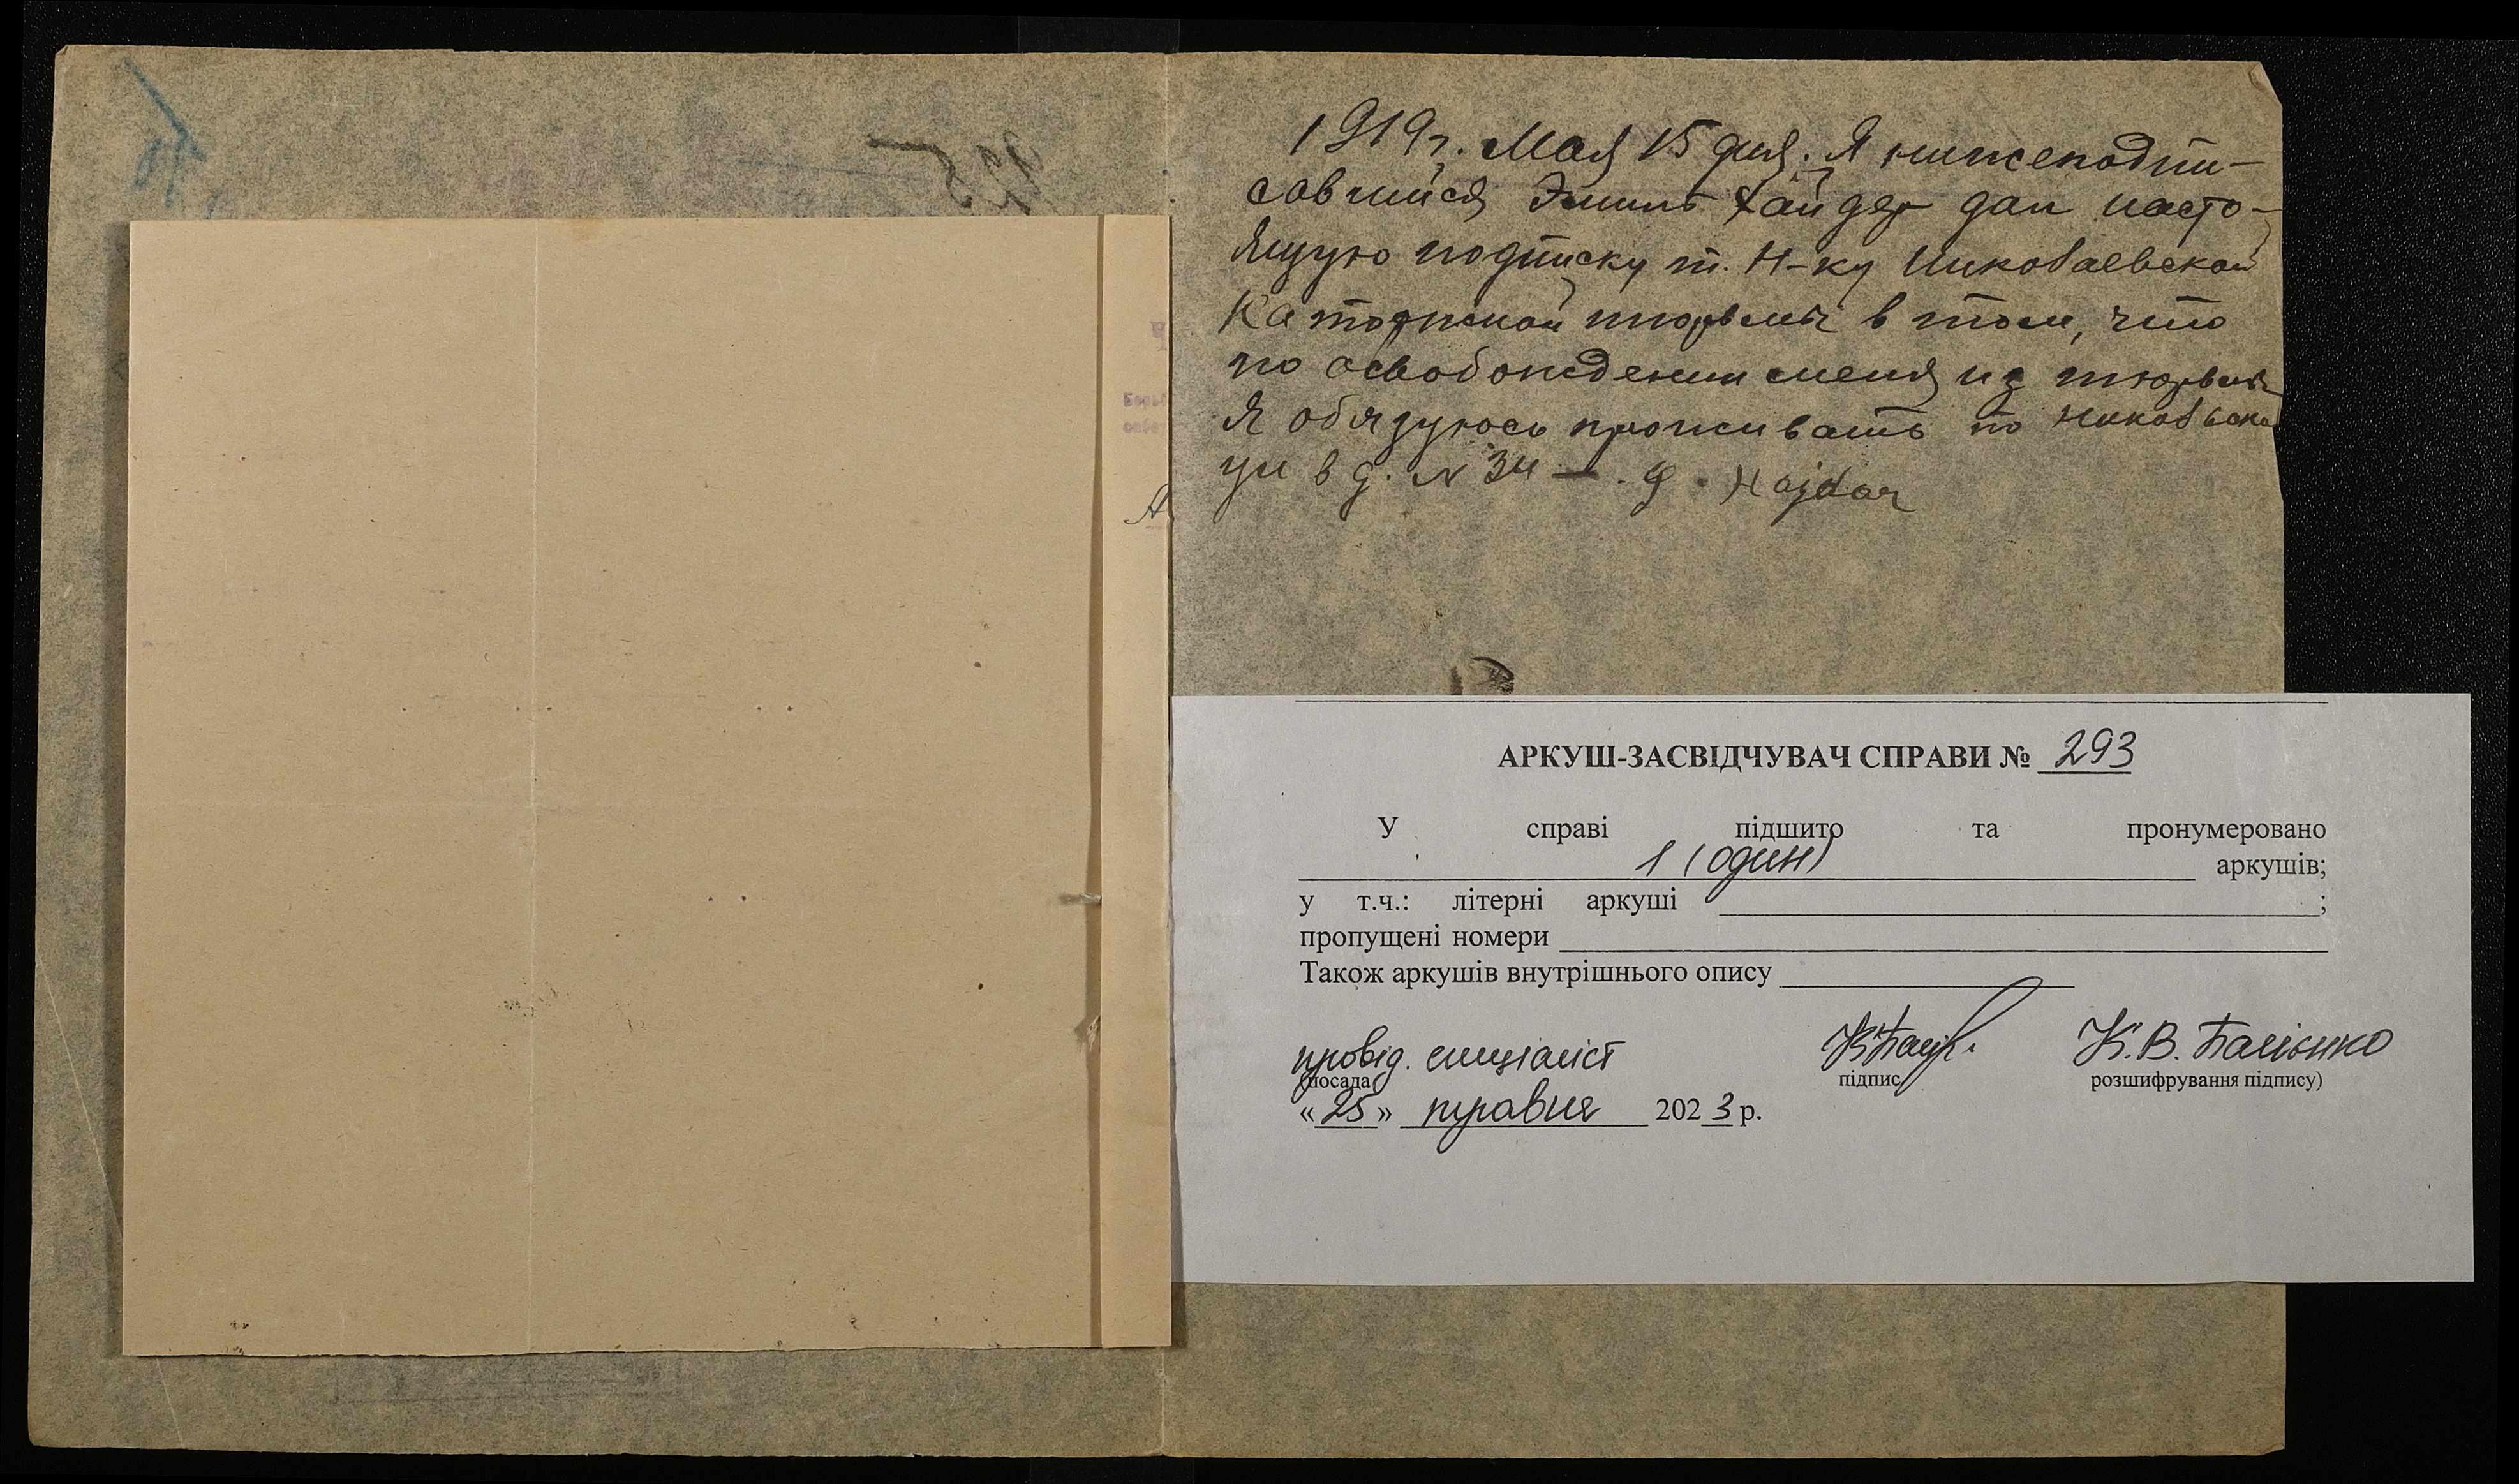 1919 г. Мая 15 дня. Я нижеподпи-
савшийся Эмиль Хайдер дал насто-
ящую подписку т. Н-ку Николаевской
Каторжной тюрьмы в том, что
по освобождении меня из тюрьмы
Я обязуюсь проживать по
ул в д. N 34 — . Э. Hajdar
АРКУШ-ЗАСВІДЧУВАЧ СПРАВИ № 293
У справі підшито та пронумеровано
1 (один) аркушів;
у т.ч.: літерні аркуші ;
пропущені номери
Також аркушів внутрішнього опису
провід. спеціаліст К.В.
(посада підпис розшифрування підпису)
« 25 » травня 2023 р.